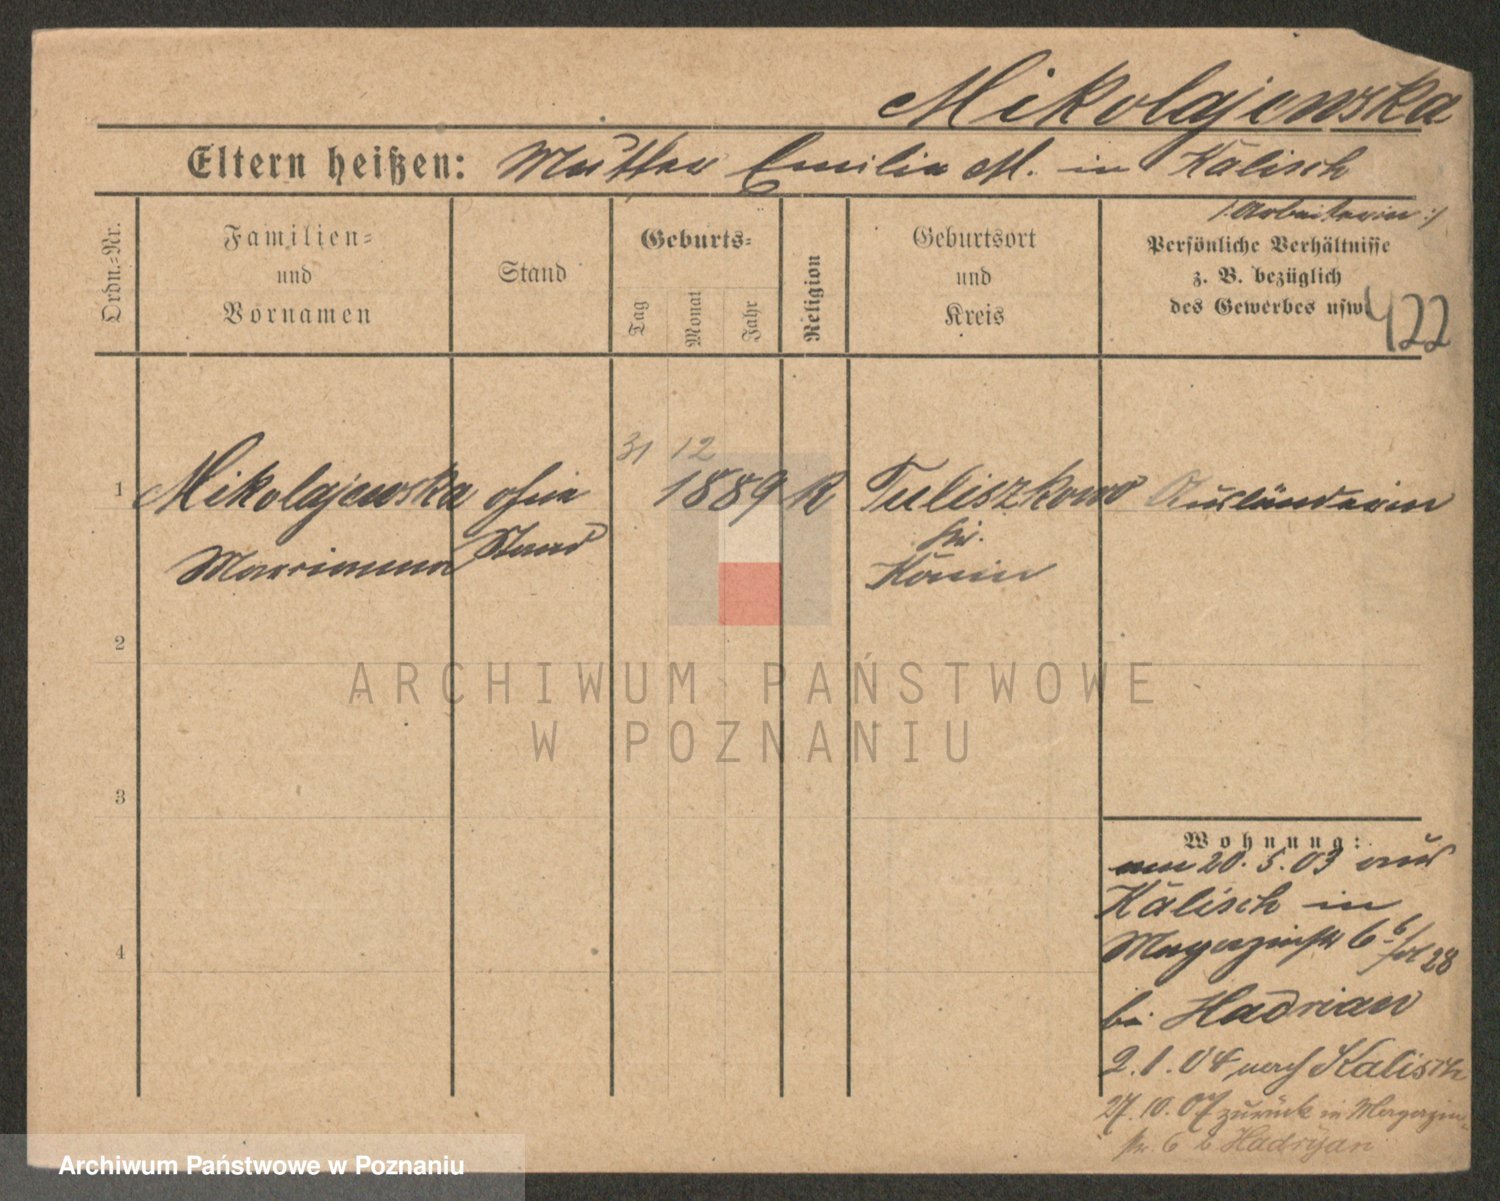 Mikolajewska
Eltern heißen: Mutter Emilia M. in Kalisch
/: Arbeiterin :/
Ordn.-Nr.
Familien-
und
Vornamen
Stand
Geburts-
Tag
Monat
Jahr
Religion
Geburtsort
und
Kreis
Persönliche Verhältnisse
z. B. bezüglich
des Gewerbes usw.
422
31 12
1 Mikolajewska ohne 1889 K Tuliszkowo Ausländerin
Marianna Stand Kr.
Konin
2
3
4
ARCHIWUM PAŃSTWOWE
W POZNANIU
Wohnung:
am 20.5.03 aus
Kalisch in
Magazinstr 6
bei Hadrian
2.1.04 nach Kalisch
27.10.07 zurück in Magazin-
str. 6 b Hadryan
Archiwum Państwowe w Poznaniu